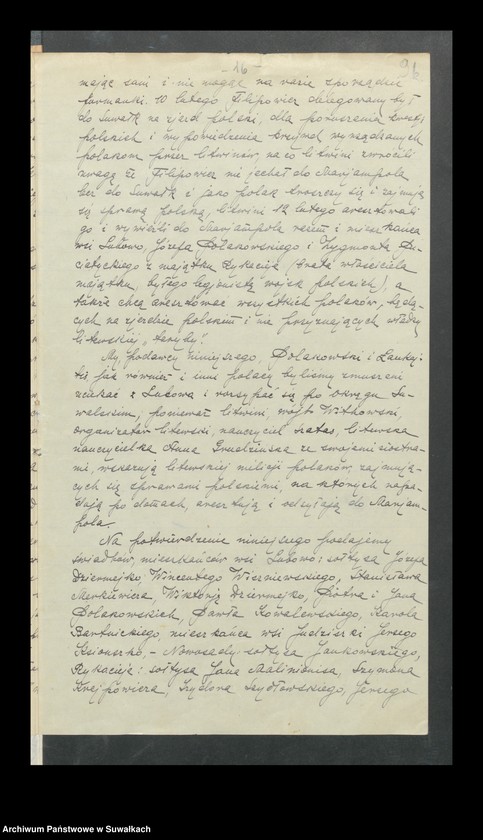 - 16 -
mając sani i nie mogąc na razie sporządzić
furmanki. 10 lutego Filipowicz delegowany był
do Suwałk na zjazd polski, dla poruszenia kwestji
polskich i wypowiedzenia krzywd wyrządzanych
polakom przez litwinów, na co litwini zwrócili
uwagę że Filipowicz nie jechał do Marjampola
lecz do Suwałk i jako polak troszczy się i zajmuje
się sprawą polską, litwini 12 lutego aresztowali
go i wywieźli do Marjampola razem i mieszkańca
wsi Lubowo, Józefa Polakowskiego i Zygmunta
z majątku Rykacieja (brata właściciela
majątku, byłego legjonisty wojsk polskich), a
także chcą aresztować wszystkich polaków, będą-
cych na zjeździe polskim i nie przyznających władzy
litewskiej "Taryby".
My, podawcy niniejszego, Polakowski i
jak również i inni polacy byliśmy zmuszeni
uciekać z Lubowa i rozsypać się po okręgu Su-
walskim, ponieważ litwini, wójt Witkowski,
organizator litewski, nauczyciel Szatas, litewska
nauczycielka Anna Grudzińska ze swojemi siostra-
mi, wskazują litewskiej milicji polaków, zajmują-
cych się sprawami polskiemi, na których napa-
dają po domach, aresztują i odsyłają do Marjam-
pola.
Na potwierdzenie niniejszego podajemy
świadków, mieszkańców wsi Lubowo: sołtysa Józefa
Dziermejko, Wincentego Wiszniewskiego, Stanisława
Merkiewicza, Wiktorję Dziermejko, Piotra i Jana
Polakowskich, Pawła Kowalewskiego, Karola
Bartnickiego, mieszkańca wsi Judziszki Jerzego
- Nowosady - sołtysa Jankowskiego,
Rykacieje: sołtysa Jana Malinionisa, Szymona
Izydora Szydłowskiego, Jerzego
Archiwum Państwowe w Suwałkach